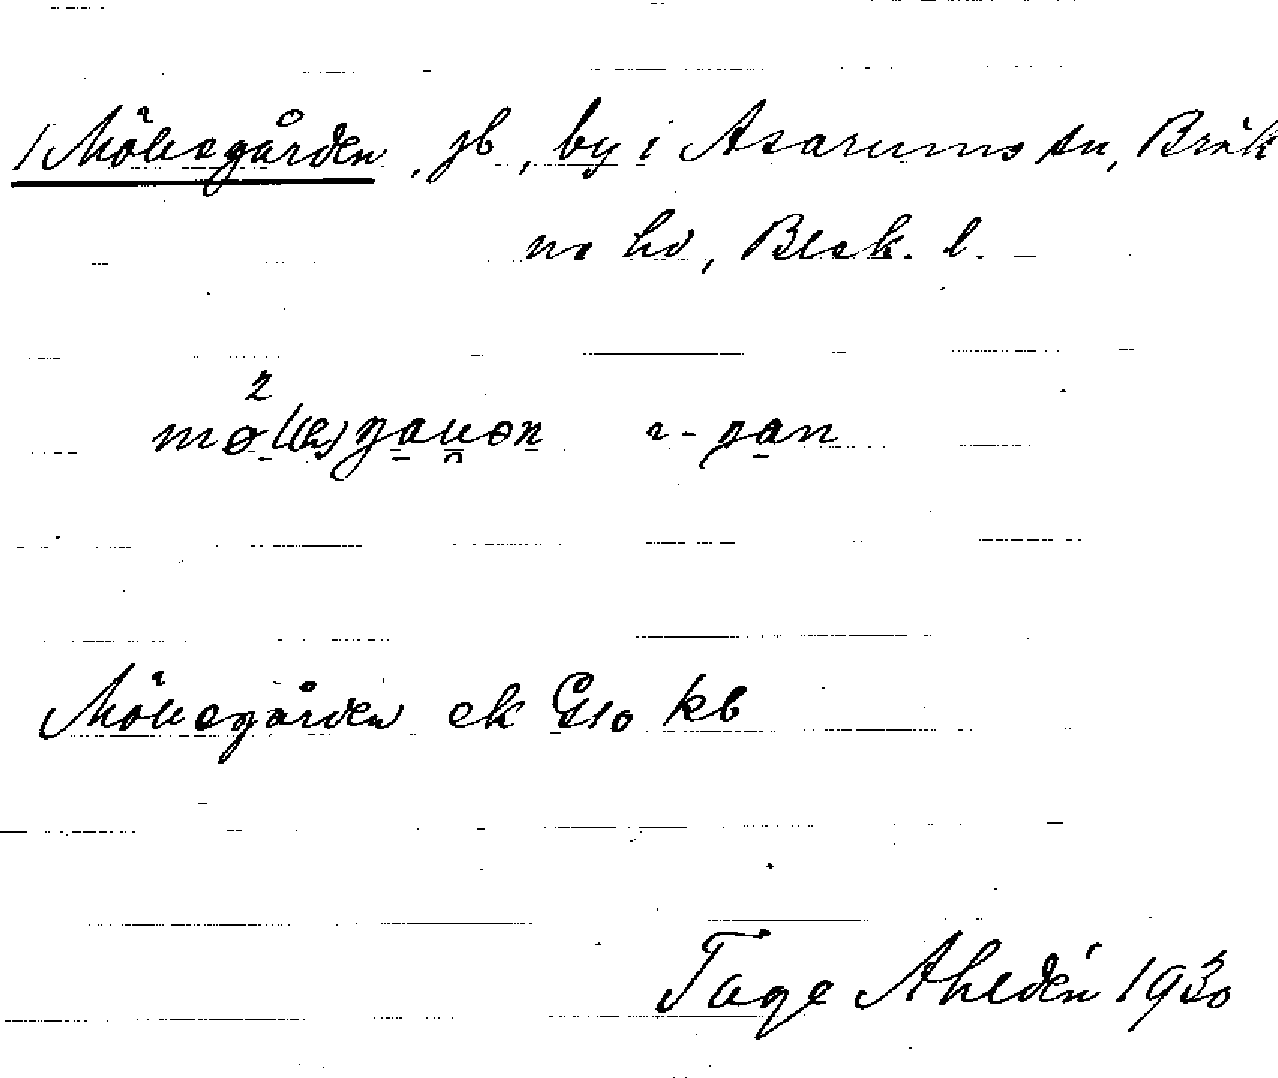 / Möllegården, jb, by i Asarums sn, Bräk
ne hd, Blek. l.
Möllegården ek G10 kb
Tage Ahldén 1930